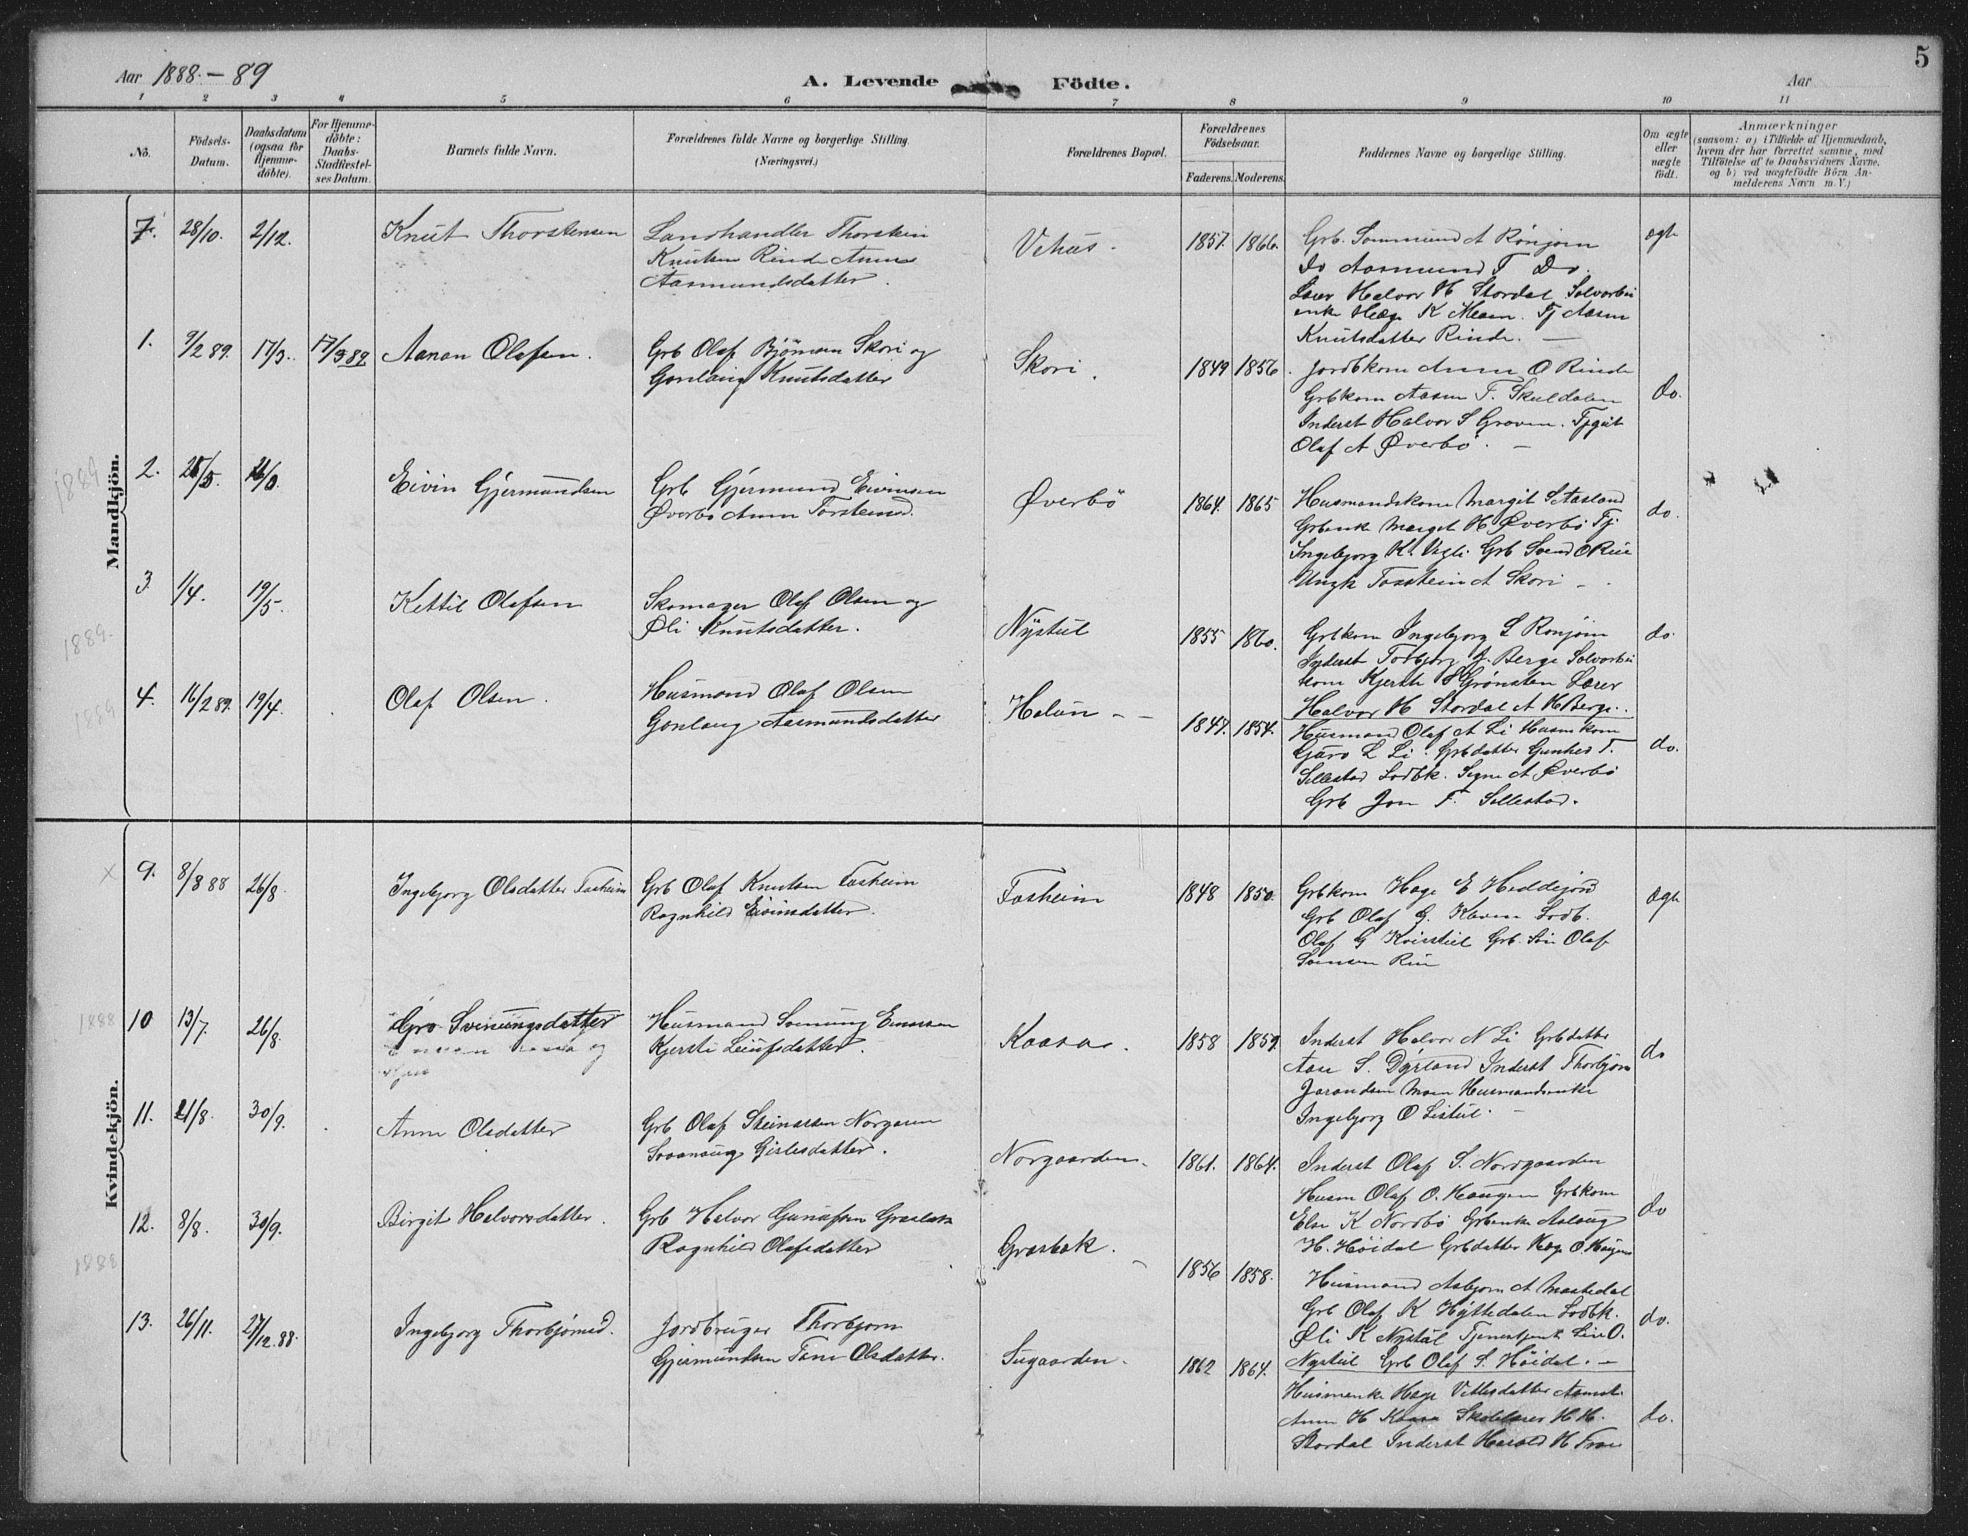 5
Aar 1888 - 89 A. Levende Födte. Aar
1 2 3 4 5 6 7 8 9 10 11
No.
Födsels-
Datum.
Daabsdatum
(ogsaa for
Hjemme-
döbte).
For Hjemme-
döbte:
Daabs-
Stadfestel-
ses Datum.
Barnets fulde Navn.
Forældrenes fulde Navne og borgerlige Stilling.
(Næringsvei.)
Forældrenes Bopæl.
Forældrenes
Födselsaar.
Faderens. Moderens.
Faddernes Navne og borgerlige Stilling.
Om ægte
eller
uægte
födt.
Anmærkninger
(saasom: a) i Tilfælde af Hjemmedaab,
hvem der har forrettet samme, med
Tilföielse af to Daabsvidners Navne,
og b) ved uægtefödte Börn An-
melderens Navn m. V.)
Mandkjön.
7. 28/10. 2/12. Knut Thorstensen
Landhandler Thorstein
Knutsen Rinde Anne
Aasmundsdatter.
Vehus. 1857. 1866.
Grb. Sommund A Rönjorn
Do Aasmund T Do.
Lærer Halvor H Stordal
enke Hæge K Moen. Tj Aasne
Knutsdatter Rinde. —
ægte
1. 9/2 89. 17/3. 17/3 89. Aanon Olafsen.
Grb Olaf Björnsen Skori og
Gonlaug Knutsdatter
Skori. 1849 1856.
Jordbkone Anne O Rinde
Grbkone Aasne T. Skuldalen
Inderst Halvor S Groven. Tjgut
Olaf A Øverbö. —
do.
1889
2. 25/5. Eivin Gjermundsen
Grb Gjermund Eivinsen
Øverbö Anne Torsteinsd.
Øverbö 1864. 1865
Husmandskone Margit S Aasland
Grbenke Margit H Øverbö Tj.
Ingebjorg K. Vegli. Grb Svend O Rue
Ungk Torstein A Skori —.
do.
3. 1/4. 19/5. Kettil Olafsen
Skomager Olaf Olsen og
Øli Knutsdatter.
Nystul 1855 1860.
Grbkone Ingebjorg L Ronjom
Inderst Torbjorg J. Berge
kone Kjersti S Grönsten Lærer
Halvor H Stordal A H Berge.
do.
1889.
4. 16/2 89. 19/4. Olaf Olsen.
Husmand Olaf Olsen
Gonlaug Aasmundsdatter
Helun - - 1847. 1854.
Husmand Olaf A Li Husmkone
Gjäro L Li. Grbdatter Gunhed T.
Sillestad Lodbk. Signe A Øverbö
Grb Jon F. Sillestad.
do.
1889
Kvindekjön.
x 9. 8/8 88 26/8. Ingebjorg Olsdatter Fosheim
Grb Olaf Knutsen Fosheim
Ragnhild Eivinsdatter.
Fosheim 1848 1850.
Grbkone Hæge E Heddejord
Grb Olaf G. Kaven Lodb.
Olaf G Kvistul Grb. Sön Olaf
Somsen Rui
Ægte
1888 10 13/7. 26/8. Gro Svenungsdatter
Husmand Sönnung Einarsen
Kjersti Leiufsdatter.
Kaasa. 1858 1859.
Inderst Halvor N Li Grbdatter
Aase S. Dyrland Inderst Thorbjörn
Jorandsen Moen Husmandsenke
Ingebjorg O Listul. —
do
11. 21/8. 30/9. Anne Olsdatter
Grb Olaf Steinarsen Norgaren
Svanaug Gislesdatter.
Norgaarden. 1861. 1864.
Inderst Olaf S. Nordgaarden
Husm Olaf O. Haugen Grbkone
Else K Nordbö Grbenke Aslaug
H. Höidal Grbdatter Hæge O. Haugen
do
12. 8/8. 30/9. Birgit Halvorsdatter.
Grb Halvor Gunlefsen Græsbæk
Ragnhild Olafsdatter
Græsbæk. 1856 1858.
Husmand Asbjorn A Mastedal
Grb Olaf K Hyttedalen Lodbk.
Øli K Nystul Tjenestjente Live O.
Nystul Grb Olaf S. Höidal. —
do.
1888
13. 26/11. 27/12. 88. Ingebjorg Thorbjörnsd.
Jordbruger Thorbjorn
Gjermundsen Tone Olsdatter.
Sugaarden. 1862 1864.
Husmenke Hæge Vetlesdatter
Anne H Kaasa Skolelærer H H.
Stordal Inderst Harald H Troe
do.